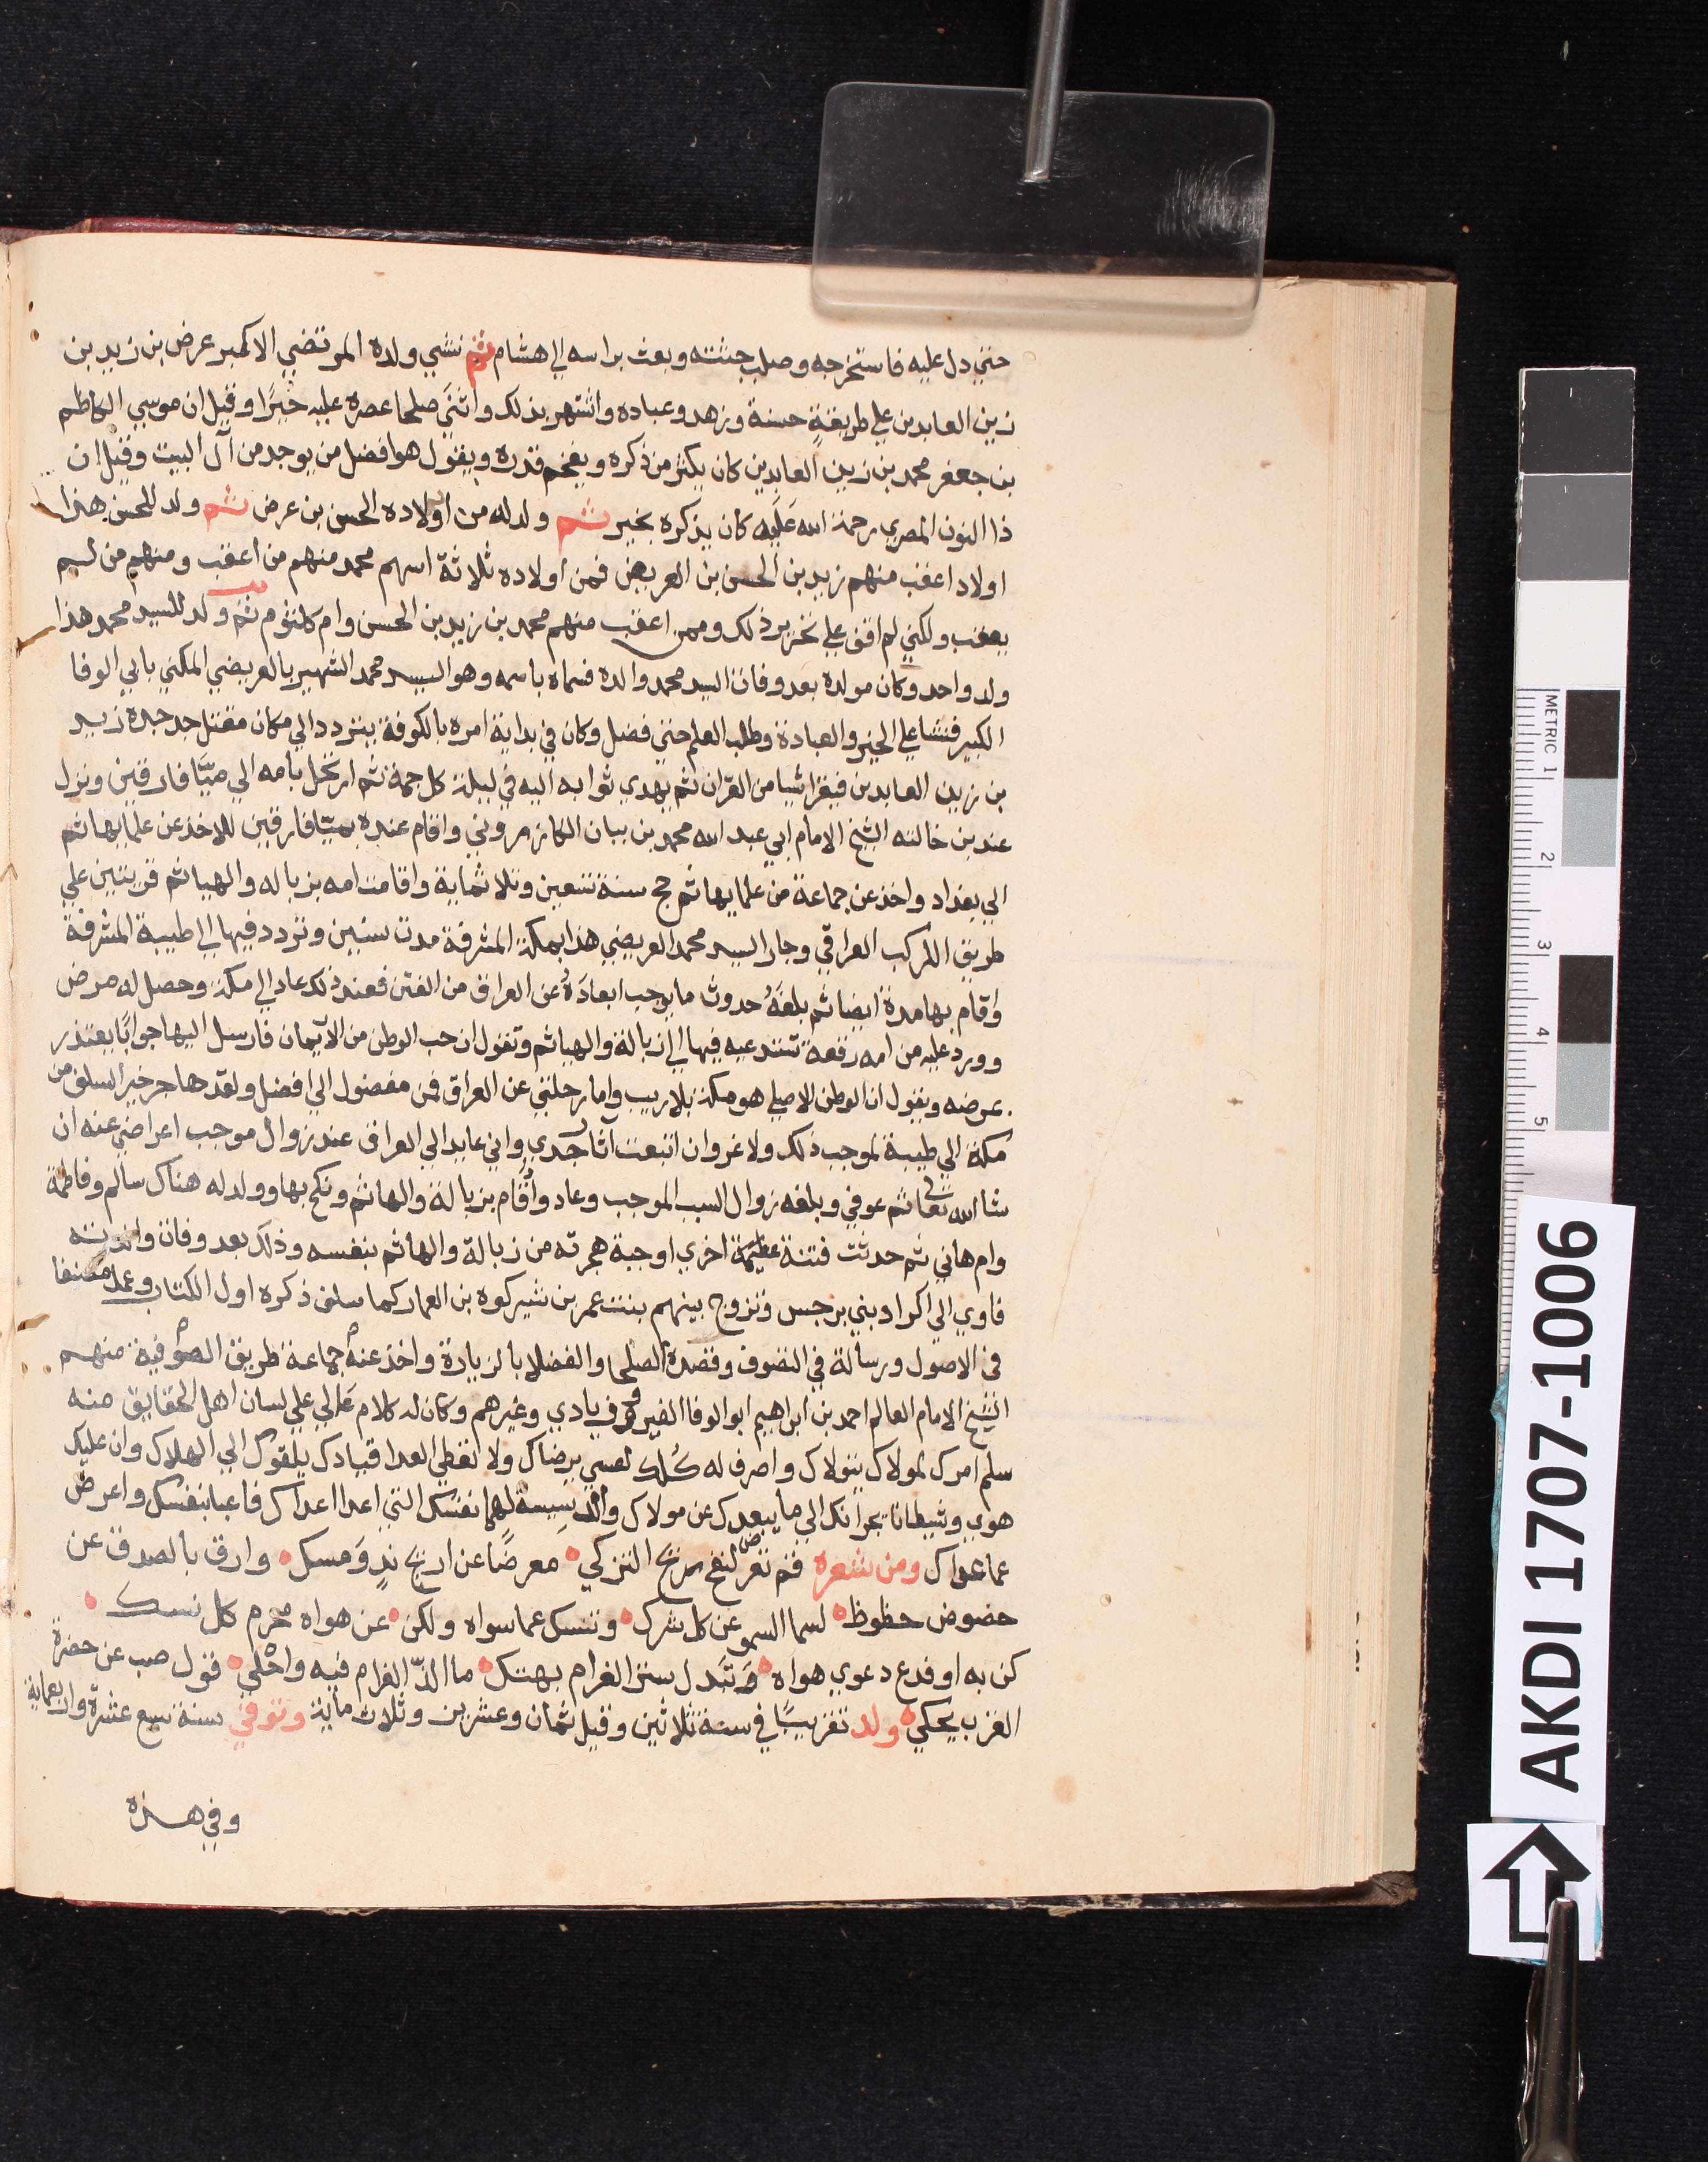 حتي دل عليه فاستخرجه وصلب جثته وبعث براسه الي هشام ثم نشي ولده المرتضي الاكبر عرض بن زيد بن
زين العابدين علي طريقةٍ حسنة وزهد وعباده واشتهر بذلك واثني صلحا عصره عليه خيرًا وقيل ان موسي الكاظم
بن جعفر محمد بن زين العابدين كان يكثر من ذكره ويفخم قدره ويقول هو افضل من يوجد من آل البيت وقيل ان
ذا النون المصري رحمة الله عليه كان يذكره بخير ثم ولد له من اولاده الحسن بن عرض ثم ولد للحسن هذا
اولاد اعقب منهم زيد بن الحسن بن العريض فمن اولاده ثلاثة اسهم محمد منهم من اعقب ومنهم من لم
يعقب ولكني لم اقف علي تحرير ذلك وممن اعقب منهم محمد بن زيد بن الحسن وام كلثوم ثم ولد للسيد محمد هذا
ولد واحد وكان مولده بعد وفات السيد محمد والده فسماه باسمه وهو السيد محمد الشهير بالعريضي المكني بابي الوفا
الكبير فنشا علي الخير والعبادة وطلب العلم حتي فضل وكان في بداية امره بالكوفة يتردد الي مكان مقتل جد جده زيد
بن زين العابدين فيقرا شيا من القران ثم يهدي ثوابه اليه في ليلة كل جمعة ثم ارتحل بامه الي ميّا فارقين ونزل
عند بن خالته الشيخ الامام ابي عبد الله محمد بن بيان الكازروني واقام عنده بميّافارقين للاخذ عن علمايها ثم
الي بغداد واخذ عن جماعة من علمايها ثم حج سنة تسعين وثلاثماية واقامت امه بزباله والهياثم قريتين علي
طريق الركب العراقي وجار السيد محمد العريضي هذا بمكة المشرفة مدت سنين وتردد فيها الي طيبة المشرفة
واقام بها مدة ايضا ثم بلغه حدوث ما يوجب ابعاده عن العراق من الفتن فعند ذلك عاد الي مكة وحصل له مرض
وورد عليه من امه رقعة تستدعيه فيها الي زبالة والهياثم وتقول ان حب الوطن من الايمان فارسل اليها جوابًا يعتذر
عرضه ويقول ان الوطن الاصلي هو مكة بلا ريب واما رحلتي عن العراق فمن مفضول الي افضل ولقد هاجر خير السلف من
مكة الي طيبة لموجب ذلك ولا غرو ان اتبعت آثار جدي واني عايد الي العراق عند زوال موجب اعراضي عنه ان
شا الله تعالي ثم عوفي وبلغه زوال السبب الموجب وعاد واقام بزبالة والهاثم ونكح بها وولد له هناك سالم وفاطمة
وام هاني ثم حدثت فتنة عظيمة اخري اوجبة هجرته من زبالة والهاثم بنفسه وذلك بعد وفات والدته
فاوي الي اكراد بني برجس وتزوج بينهم بنت عمر بن شيركوه بن العمار كما سلف ذكره اول الكتاب وعمل مصنفا
في الاصول ورسالة في التصوف وقصده الصلحا والفضلا بالزيادة واخذ عنه جماعة طريق الصوفية منهم
الشيخ الامام العالم احمد بن ابراهيم ابو الوفا الفيروفيادي وغيرهم وكان له كلام عالي علي لسان اهل الحقايق منه
سلم امرك لمولاك يتولاك واصرف له كلك لعسي يرضاك ولا تعطي العدا قيادك يلقوك الي الهلاك وان عليك
هوي وشيطانا يجرانك الي ما يبعدك عن مولاك لهما نفسك التي اعدا اعداك فاعبا بنفسك واعرض
عما عداك ومن شعره قم تعرض لنفح ريح التزكي معرضًا عن اريج ندٍ وَمسك وارق بالصدق عن
حضوض حظوظ لسما السمو عن كل شرك وتنسك عما سواه ولكن عن هواه محرم كل نسك
كن به او فدع دعوي هواه وتَبَدل ستر الغرام بهتك ما الذّ الغرام فيه واحْلي قول صب عن حضرة
القرب يحكي ولد تقريبًا في سنة ثلاثين وقيل ثمان وعشرين وثلاث ماية وتوفي سنة سبع عشرة واربعماية
وفي هذه
METRIC 1 2 3 4 5
AKDI 1707-1006